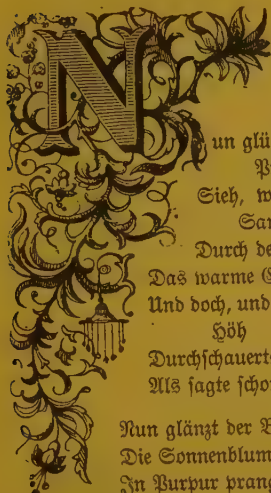 Nun glü
P
Sieh, w
Sa
Durch de
Das warme G
Und doch, und
Höh
Durchschauert
Als sagte scho
Nun glänzt der B
Die Sonnenblum
In Purpur prang